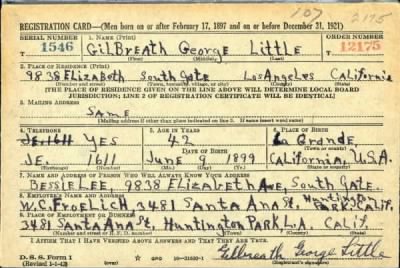 107 2175
REGISTRATION CARD—(Men born on or after February 17, 1897 and on or before December 31, 1921)
SERIAL NUMBER 1. NAME (Print) ORDER NUMBER
1546 GilBreath George Little 12175
(First) (Middle) (Last)
2. PLACE OF RESIDENCE (Print)
9838 Elizabeth South Gate Los Angeles California
(Number and street) (Town, township, village, or city) (County) (State)
[THE PLACE OF RESIDENCE GIVEN ON THE LINE ABOVE WILL DETERMINE LOCAL BOARD
JURISDICTION; LINE 2 OF REGISTRATION CERTIFICATE WILL BE IDENTICAL]
3. MAILING ADDRESS
SAME
[Mailing address if other than place indicated on line 2. If same insert word same]
4. TELEPHONE 5. AGE IN YEARS 6. PLACE OF BIRTH
JE.1611 YES 42 La Grande
DATE OF BIRTH
JE. 1611 June 9 1899 California, U.S.A.
(Exchange) (Number) (Mo.) (Day) (Yr.) (State or country)
7. NAME AND ADDRESS OF PERSON WHO WILL ALWAYS KNOW YOUR ADDRESS
BESSIE LEE, 9838 Elizabeth Ave, South Gate.
8. EMPLOYER'S NAME AND ADDRESS
W.C. Froelich, 3481 Santa Ana St, Huntington Park, Calif.
9. PLACE OF EMPLOYMENT OR BUSINESS
3481 Santa Ana St. Huntington Park L.A. Calif.
(Number and street or R. F. D. number) (Town) (County) (State)
I AFFIRM THAT I HAVE VERIFIED ABOVE ANSWERS AND THAT THEY ARE TRUE.
D. S. S. Form 1
(Revised 1-1-42) (over) 16—21630-1 Gilbreath George Little
(Registrant's signature)